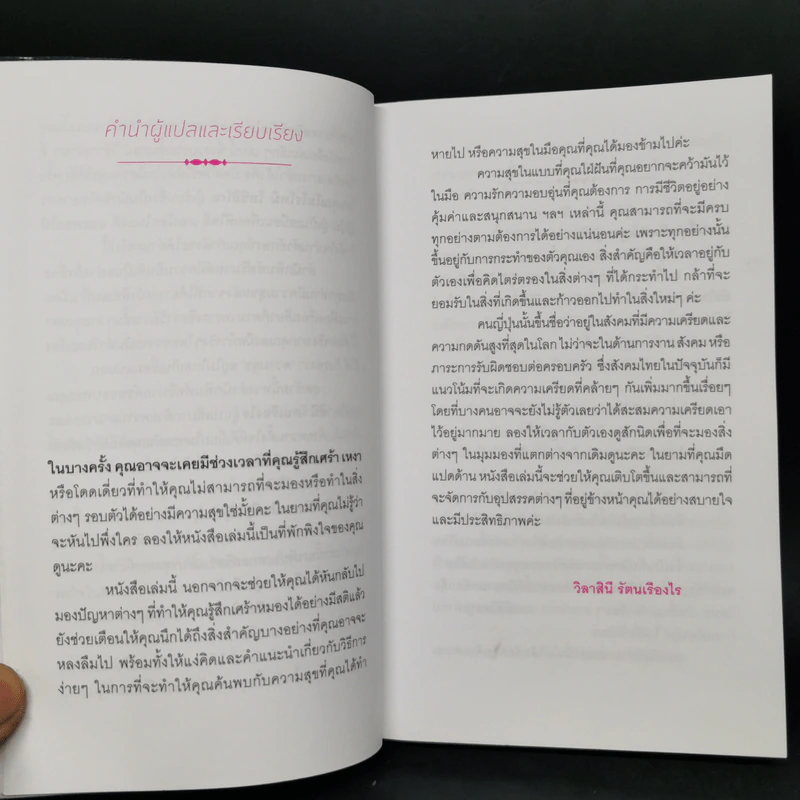 คำนำผู้แปลและเรียบเรียง
ในบางครั้ง คุณอาจจะเคยมีช่วงเวลาที่คุณรู้สึกเศร้า เหงา
หรือโดดเดี่ยวที่ทำให้คุณไม่สามารถที่จะมองหรือทำในสิ่ง
ต่างๆ รอบตัวได้อย่างมีความสุขใช่มั้ยคะ ในยามที่คุณไม่รู้ว่า
จะหันไปพึ่งใคร ลองให้หนังสือเล่มนี้เป็นที่พักพิงใจของคุณ
ดูนะคะ
หนังสือเล่มนี้ นอกจากจะช่วยให้คุณได้หันกลับไป
มองปัญหาต่างๆ ที่ทำให้คุณรู้สึกเศร้าหมองได้อย่างมีสติแล้ว
ยังช่วยเตือนให้คุณนึกได้ถึงสิ่งสำคัญบางอย่างที่คุณอาจจะ
หลงลืมไป พร้อมทั้งให้แง่คิดและคำแนะนำเกี่ยวกับวิธีการ
ง่ายๆ ในการที่จะทำให้คุณค้นพบกับความสุขที่คุณได้ทำ
หายไป หรือความสุขในมือคุณที่คุณได้มองข้ามไปค่ะ
ความสุขในแบบที่คุณใฝ่ฝันที่คุณอยากจะคว้ามันไว้
ในมือ ความรักความอบอุ่นที่คุณต้องการ การมีชีวิตอยู่อย่าง
คุ้มค่าและสนุกสนาน ฯลฯ เหล่านี้ คุณสามารถที่จะมีครบ
ทุกอย่างตามต้องการได้อย่างแน่นอนค่ะ เพราะทุกอย่างนั้น
ขึ้นอยู่กับการกระทำของตัวคุณเอง สิ่งสำคัญคือให้เวลาอยู่กับ
ตัวเองเพื่อคิดไตร่ตรองในสิ่งต่างๆ ที่ได้กระทำไป กล้าที่จะ
ยอมรับในสิ่งที่เกิดขึ้นและก้าวออกไปทำในสิ่งใหม่ๆ ค่ะ
คนญี่ปุ่นนั้นขึ้นชื่อว่าอยู่ในสังคมที่มีความเครียดและ
ความกดดันสูงที่สุดในโลก ไม่ว่าจะในด้านการงาน สังคม หรือ
ภาระการรับผิดชอบต่อครอบครัว ซึ่งสังคมไทยในปัจจุบันก็มี
แนวโน้มที่จะเกิดความเครียดที่คล้ายๆ กันเพิ่มมากขึ้นเรื่อยๆ
โดยที่บางคนอาจจะยังไม่รู้ตัวเลยว่าได้สะสมความเครียดเอา
ไว้อยู่มากมาย ลองให้เวลากับตัวเองดูสักนิดเพื่อที่จะมองสิ่ง
ต่างๆ ในมุมมองที่แตกต่างจากเดิมดูนะคะ ในยามที่คุณมืด
แปดด้าน หนังสือเล่มนี้จะช่วยให้คุณเติบโตขึ้นและสามารถที่
จะจัดการกับอุปสรรคต่างๆ ที่อยู่ข้างหน้าคุณได้อย่างสบายใจ
และมีประสิทธิภาพค่ะ
วิลาสินี รัตนเรืองไร